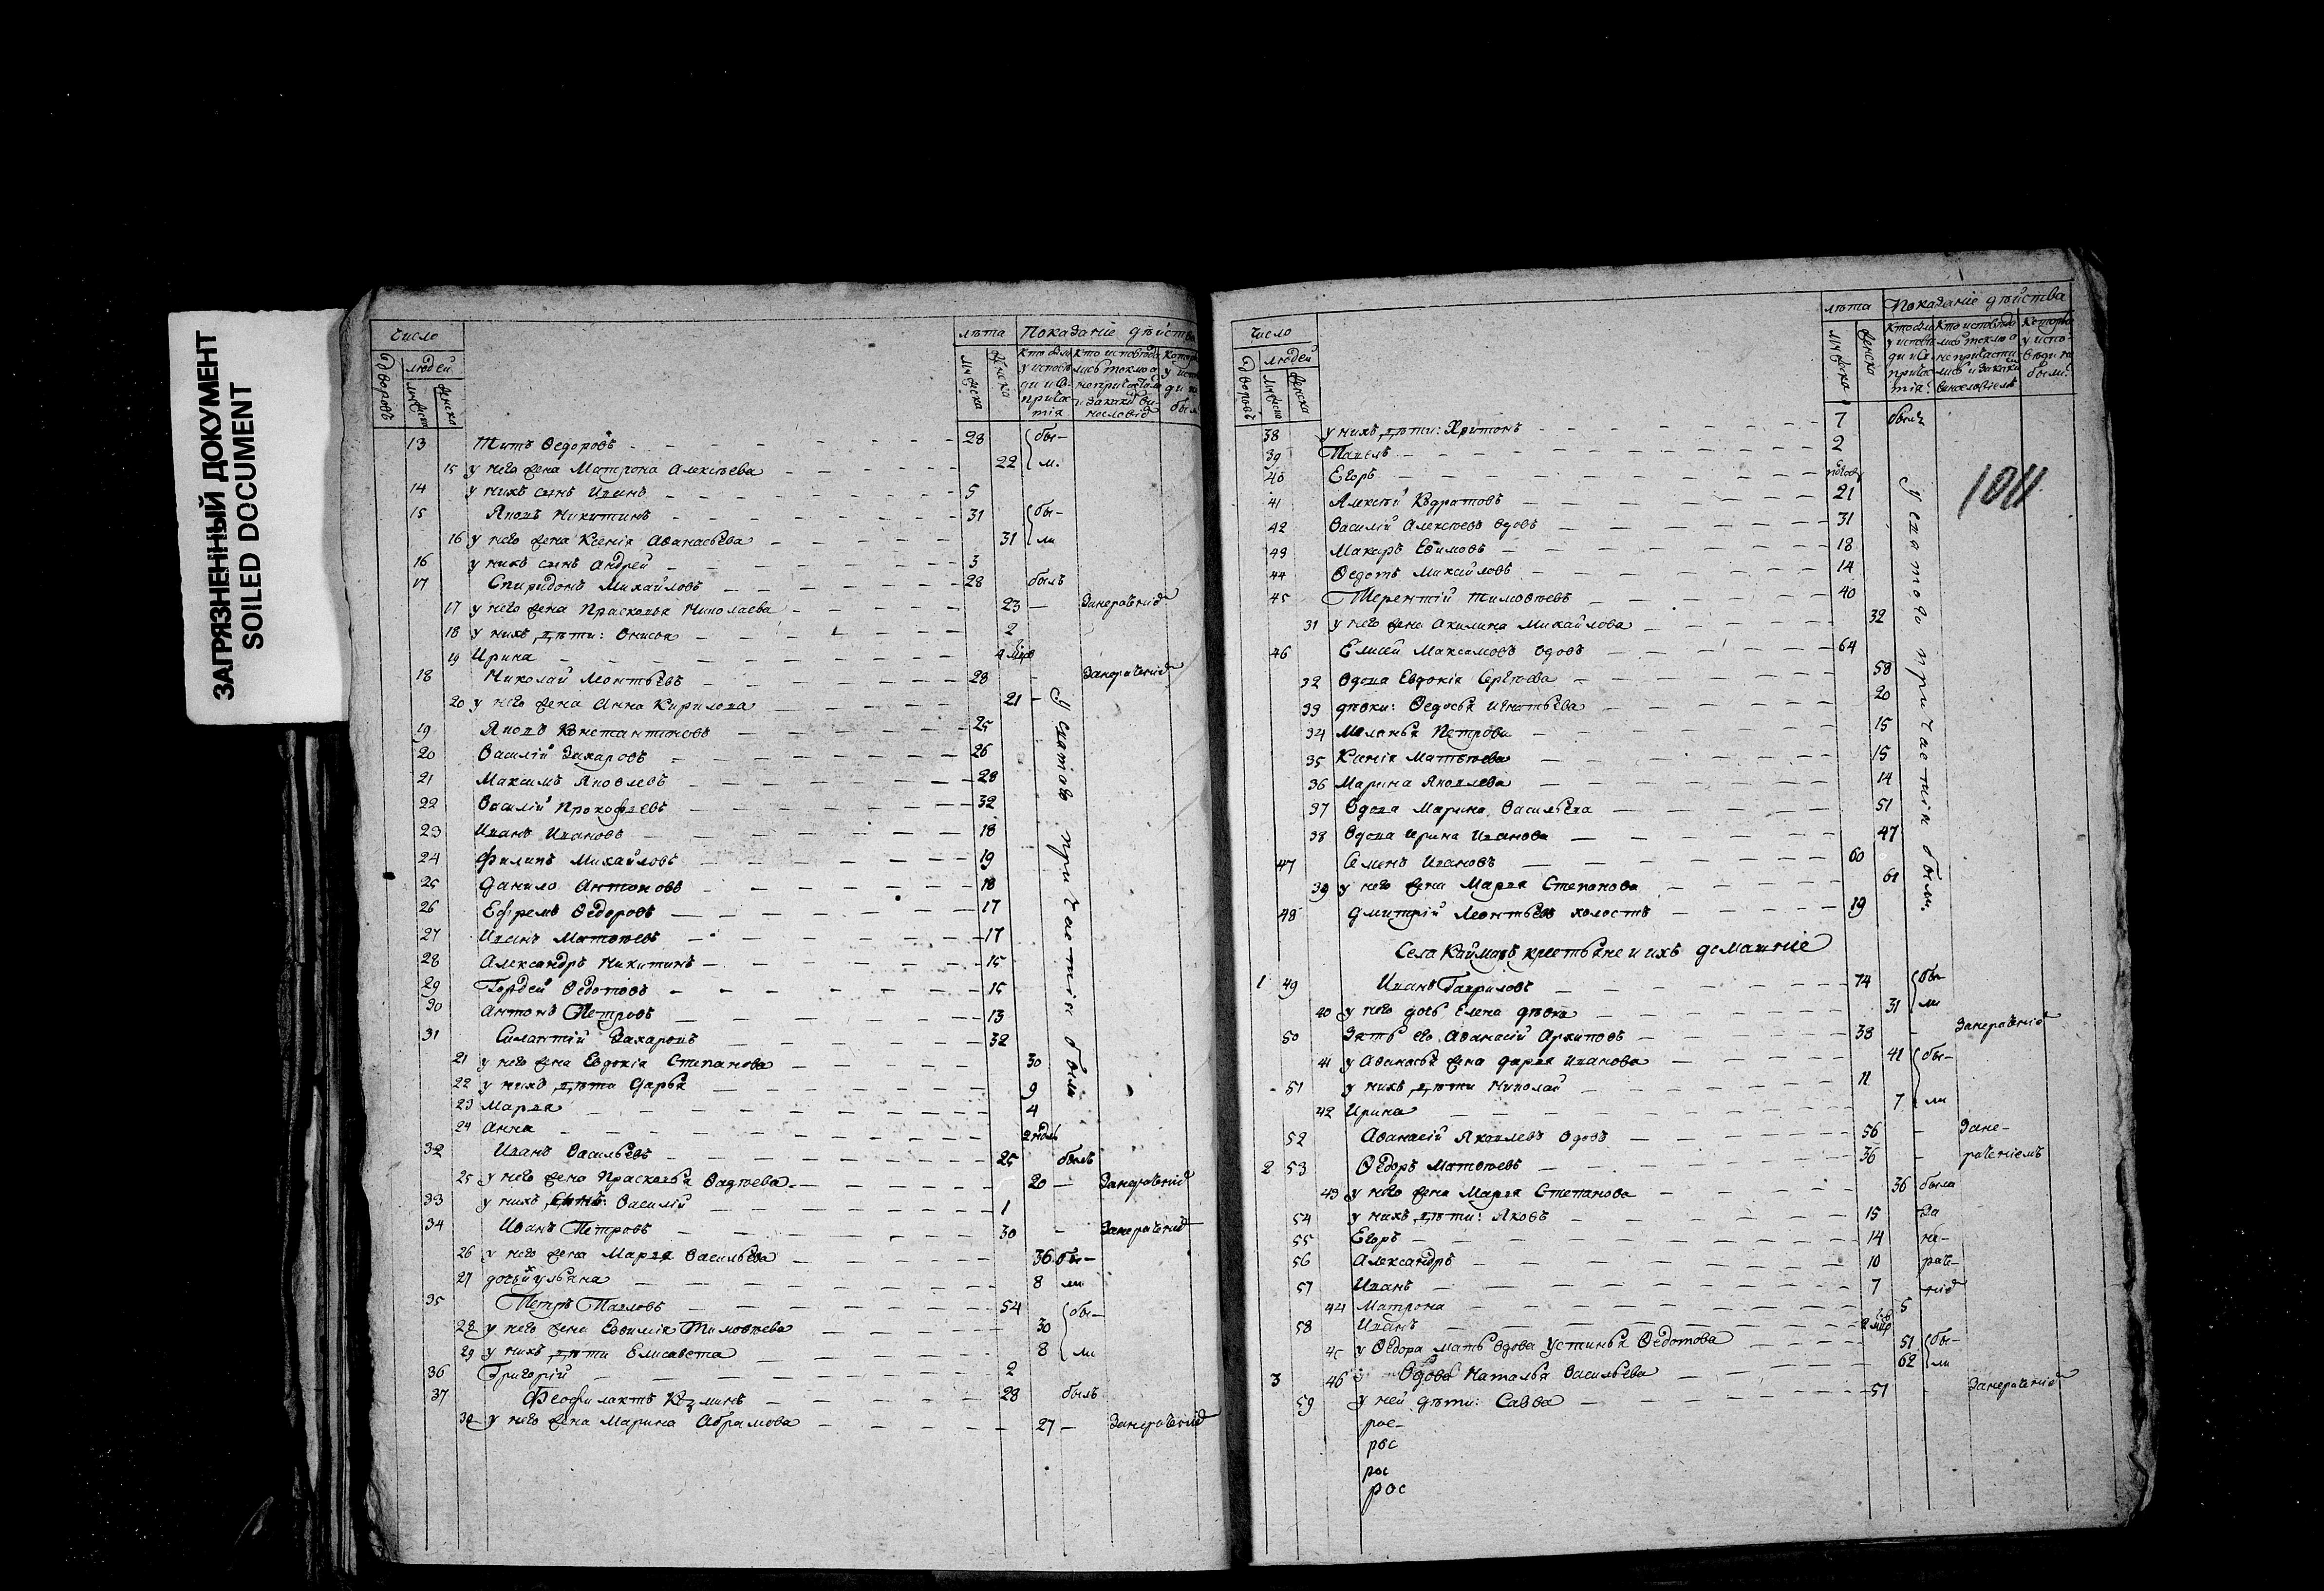 ЗАГРЯЗНЕННЫЙ ДОКУМЕНТ
SOILED DOCUMENT
Число лѣта Показаніе дѣйства
Дворовъ людей
13 Титъ Ѳедоровъ 28 бы-
15 у него жена Матрона Алексѣева 22 ли.
14 у нихъ сынъ Иванъ 5
15 Яковъ Никитинъ 31 бы-
16 у него жена Ксенія Аѳанасьева 31 ли
16 у нихъ сынъ Андрей 3
17 Спиридонъ Михайловъ 28 былъ
17 у него жена Прасковья Николаева 23 — Занераченіе
18 у нихъ дѣти: Онисья 2
19 Ирина
18 Николай Леонтьевъ 28 Занераченіе
20 у него жена Анна Кирилова 21
19 Яковъ Константиновъ 25
20 Василій Захаровъ 26
21 Максимъ Яковлевъ 28
22 Василій Прокофьевъ 32
23 Иванъ Ивановъ 18
24 Филипъ Михайловъ 19
25 Данило Антоновъ 18
26 Ефремъ Ѳедоровъ 17
27 Иванъ Матвѣевъ 17
28 Александръ Никитинъ 15
29 Гордей Ѳедотовъ 15
30 Антонъ Петровъ 13
31 Силантій Захаровъ 32
21 у него жена Евдокія Степанова 30
22 у нихъ дѣти Дарья 9
23 Марья 4
24 Анна
32 Иванъ Васильевъ 25 былъ
25 у него жена Прасковья Фадѣева 20 — Занераченіе
33 у нихъ сынъ: Василій 1
34 Иванъ Петровъ 30 — Занераченіе
26 у него жена Марья Васильева 36 бы-
27 дочь Ульяна 8 ли
35 Петръ Павловъ 54 бы-
28 у него жена Евѳимія Тимоѳѣева 30
29 у нихъ дѣти Елисавета 8 ли
36 Григорій 2
37 Феофилактъ Козминъ 28 былъ
30 у него жена Марина Абрамова 27 — Занераченіе
У святого причастія были
Число лѣта Показаніе дѣйства
Дворовъ людей
1011
38 у нихъ дѣти: Харитонъ 7 былъ
39 Павелъ 2
40 Егоръ
41 Алексѣй Кодратовъ 21
42 Василій Алексѣевъ вдовъ 31
43 Макаръ Евѳимовъ 18
44 Ѳедотъ Михайловъ 14
45 Терентій Тимоѳѣевъ 40
31 у него жена Акилина Михайлова 32
46 Елисей Максимовъ вдовъ 64
32 Вдова Евдокія Сергѣева 58
33 дѣвки: Ѳедосья Игнатьева 20
34 Маланья Петрова 15
35 Ксенія Матвѣева 15
36 Марина Яковлева 14
37 Вдова Марина Васильева 51
38 Вдова Ирина Иванова 47
47 Семенъ Ивановъ 60
39 у него жена Марья Степанова 61
48 Дмитрій Леонтьевъ холостъ 19
У святого причастія были.
Села Каймаръ крестьяне и ихъ домашніе
1 49 Иванъ Гавриловъ 74 бы-
40 у него дочь Елена дѣвка 31 ли
50 Зять его Аѳанасій Архиповъ 38 — Занераченіе
41 у Аѳанасья жена Дарья Иванова 41 бы-
51 у нихъ дѣти Николай 11
42 Ирина 7 ли
52 Аѳанасій Яковлевъ вдовъ 56 — Зане-
2 53 Ѳедоръ Матвѣевъ 36 — раченіемъ
43 у него жена Марья Степанова 36 была
54 у нихъ дѣти: Яковъ 15 За
55 Егоръ 14 не-
56 Александръ 10 раче-
57 Иванъ 7 ніе
44 Матрона 5
58 Иванъ
45 у Ѳедора мать вдова Устинья Ѳедотова 51 бы-
3 46 Вдова Наталья Васильева 62 ли
59 у ней дѣти: Савва 51 Занераченіе
рос-
рос
рос
рос